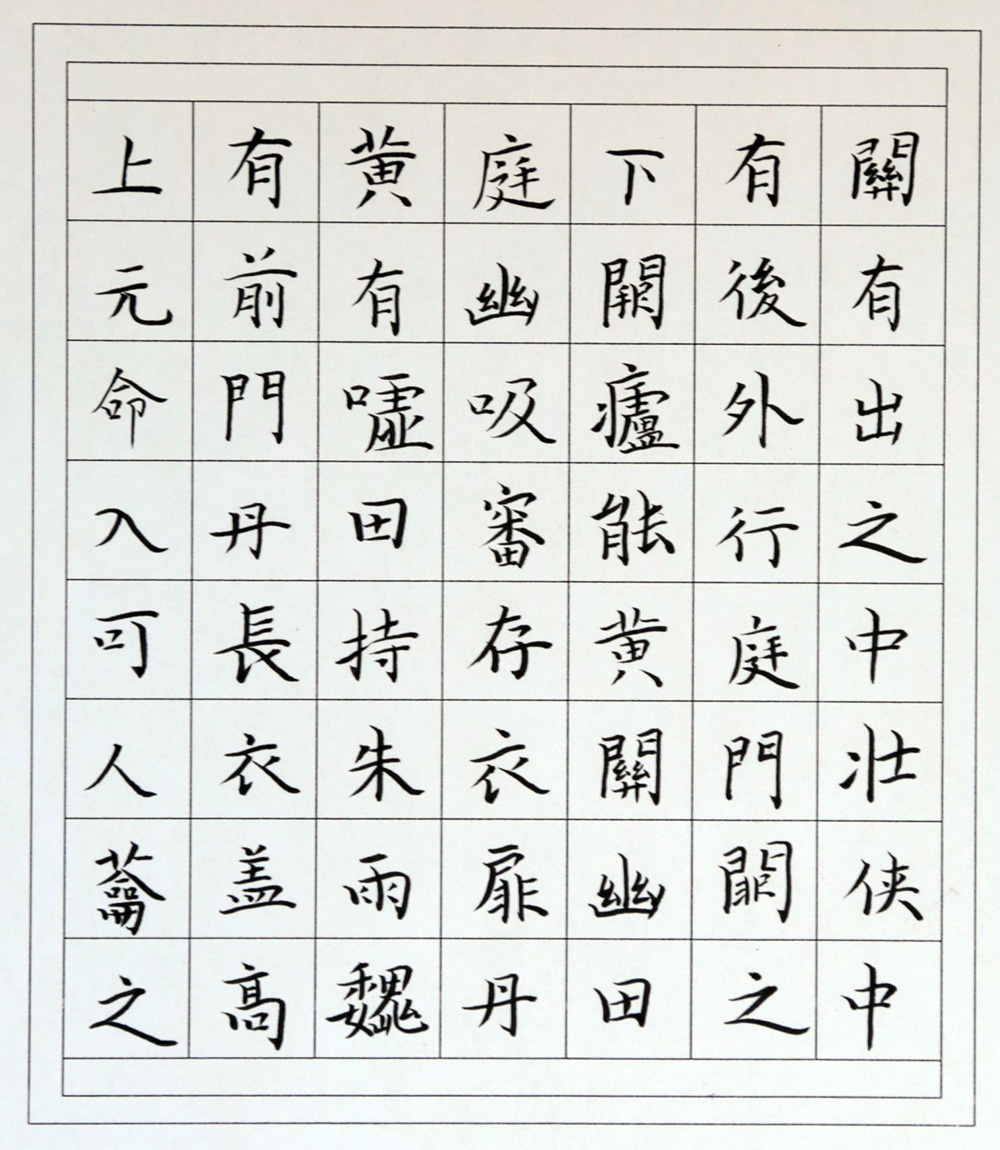 上有黄庭下有關
元前有幽闕後有
命門噓吸廬外出
入丹田審能行之
可長持存黄庭中
人衣朱衣關門壯
蘥盖雨扉幽闕侠
之高魏丹田之中